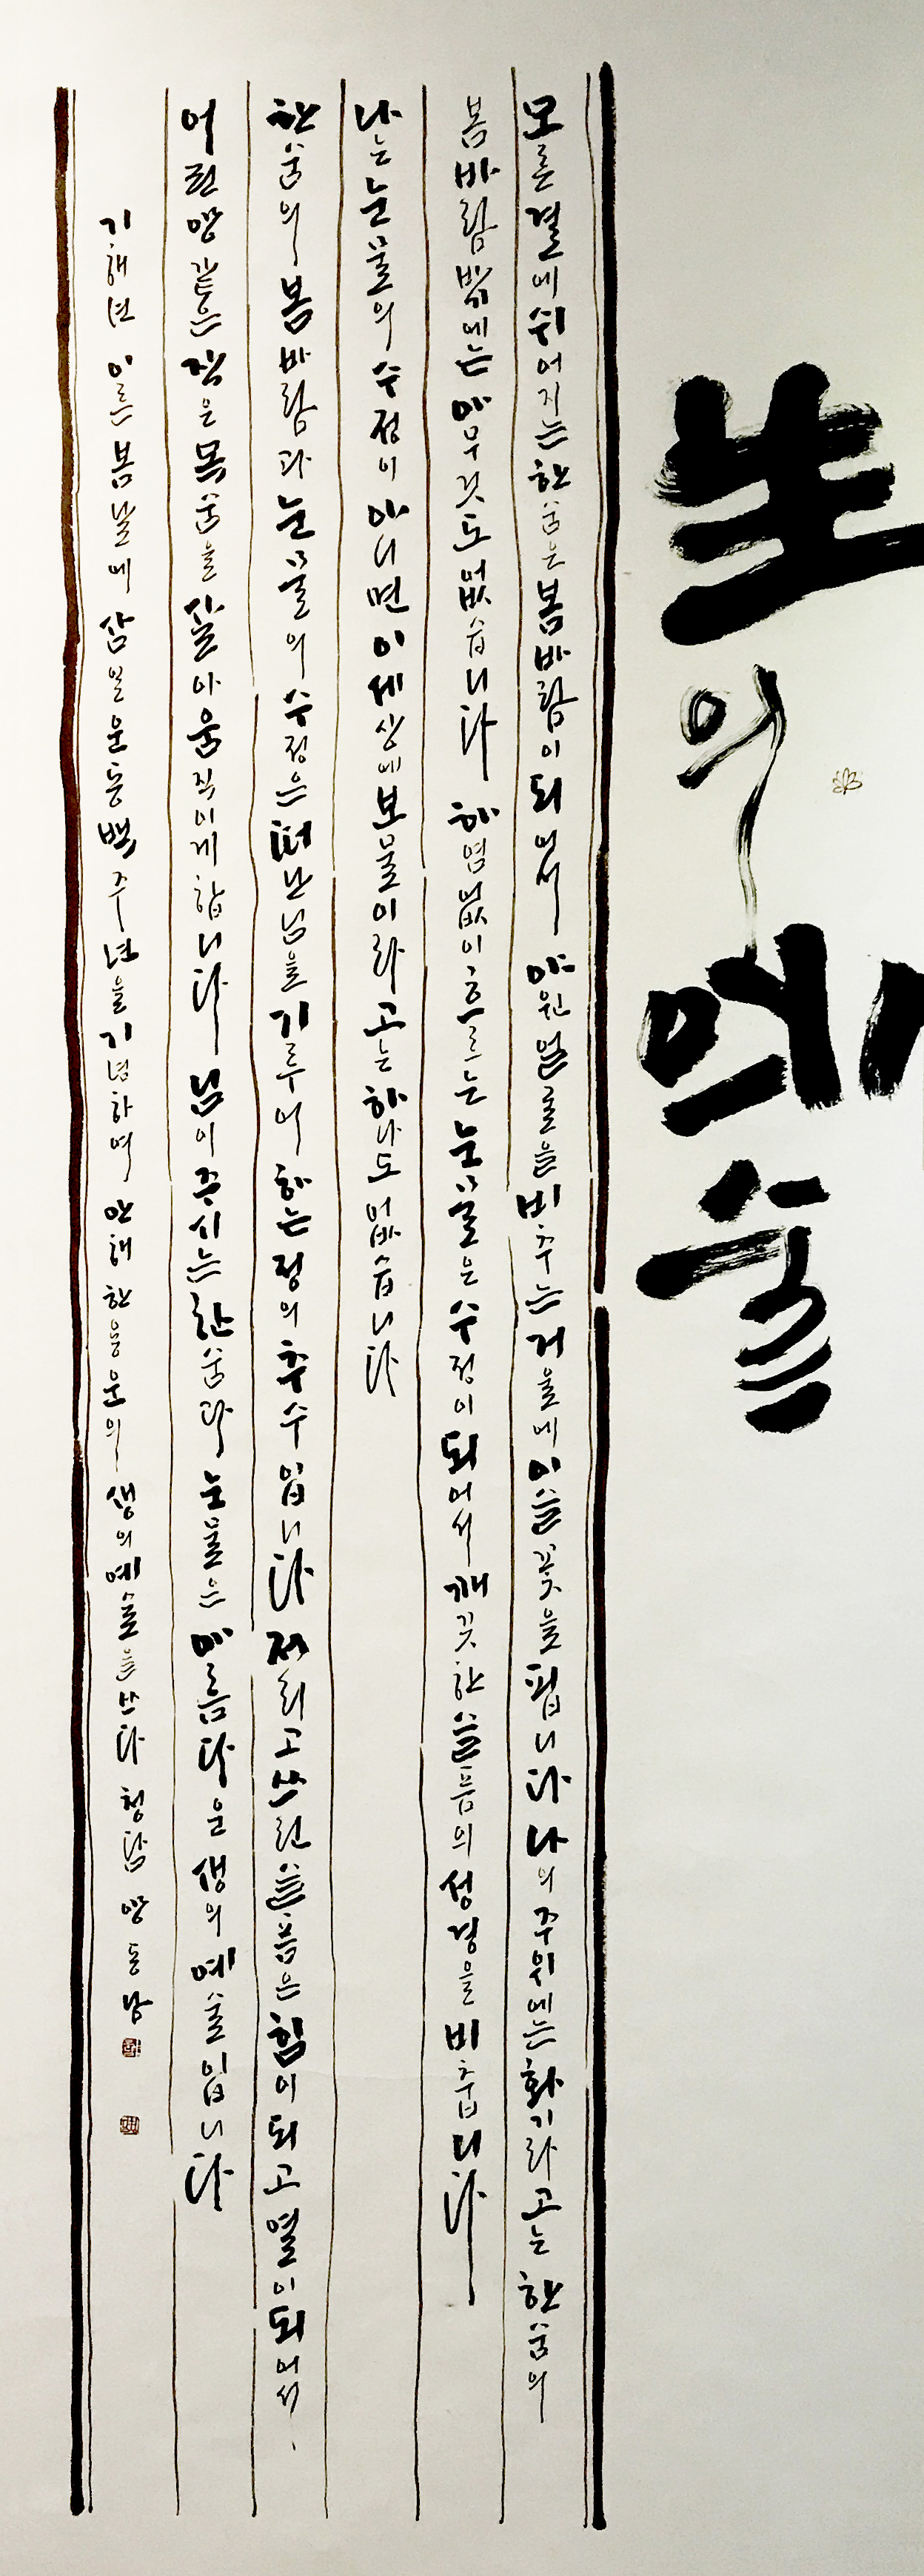 生의 예술
모른 결에 쉬어지는 한숨은 봄바람이 되어서 야윈 얼골을 비추는 거울에 이슬꽃을 핍니다 나의 주위에는 화기라고는 한숨의
봄바람 밖에는 아무것도 없습니다 하염없이 흐르는 눈물은 수정이 되어서 깨끗한 슬픔의 성경을 비춥니다
나는 눈물의 수정이 아니면 이 세상에 보물이라고는 하나도 없습니다
한숨의 봄바람과 눈물의 수정은 떠난 님을 기루어 하는 정의 추수입니다 저리고 쓰린 슬픔은 힘이 되고 열이 되어서
어린 양 같은 작은 목숨을 살아 움직이게 합니다 님이 주시는 한숨과 눈물은 아름다운 생의 예술입니다
기해년 이른 봄날에 삼일운동 백주년을 기념하며 만해 한용운의 생의 예술을 쓰다 청람 양동남